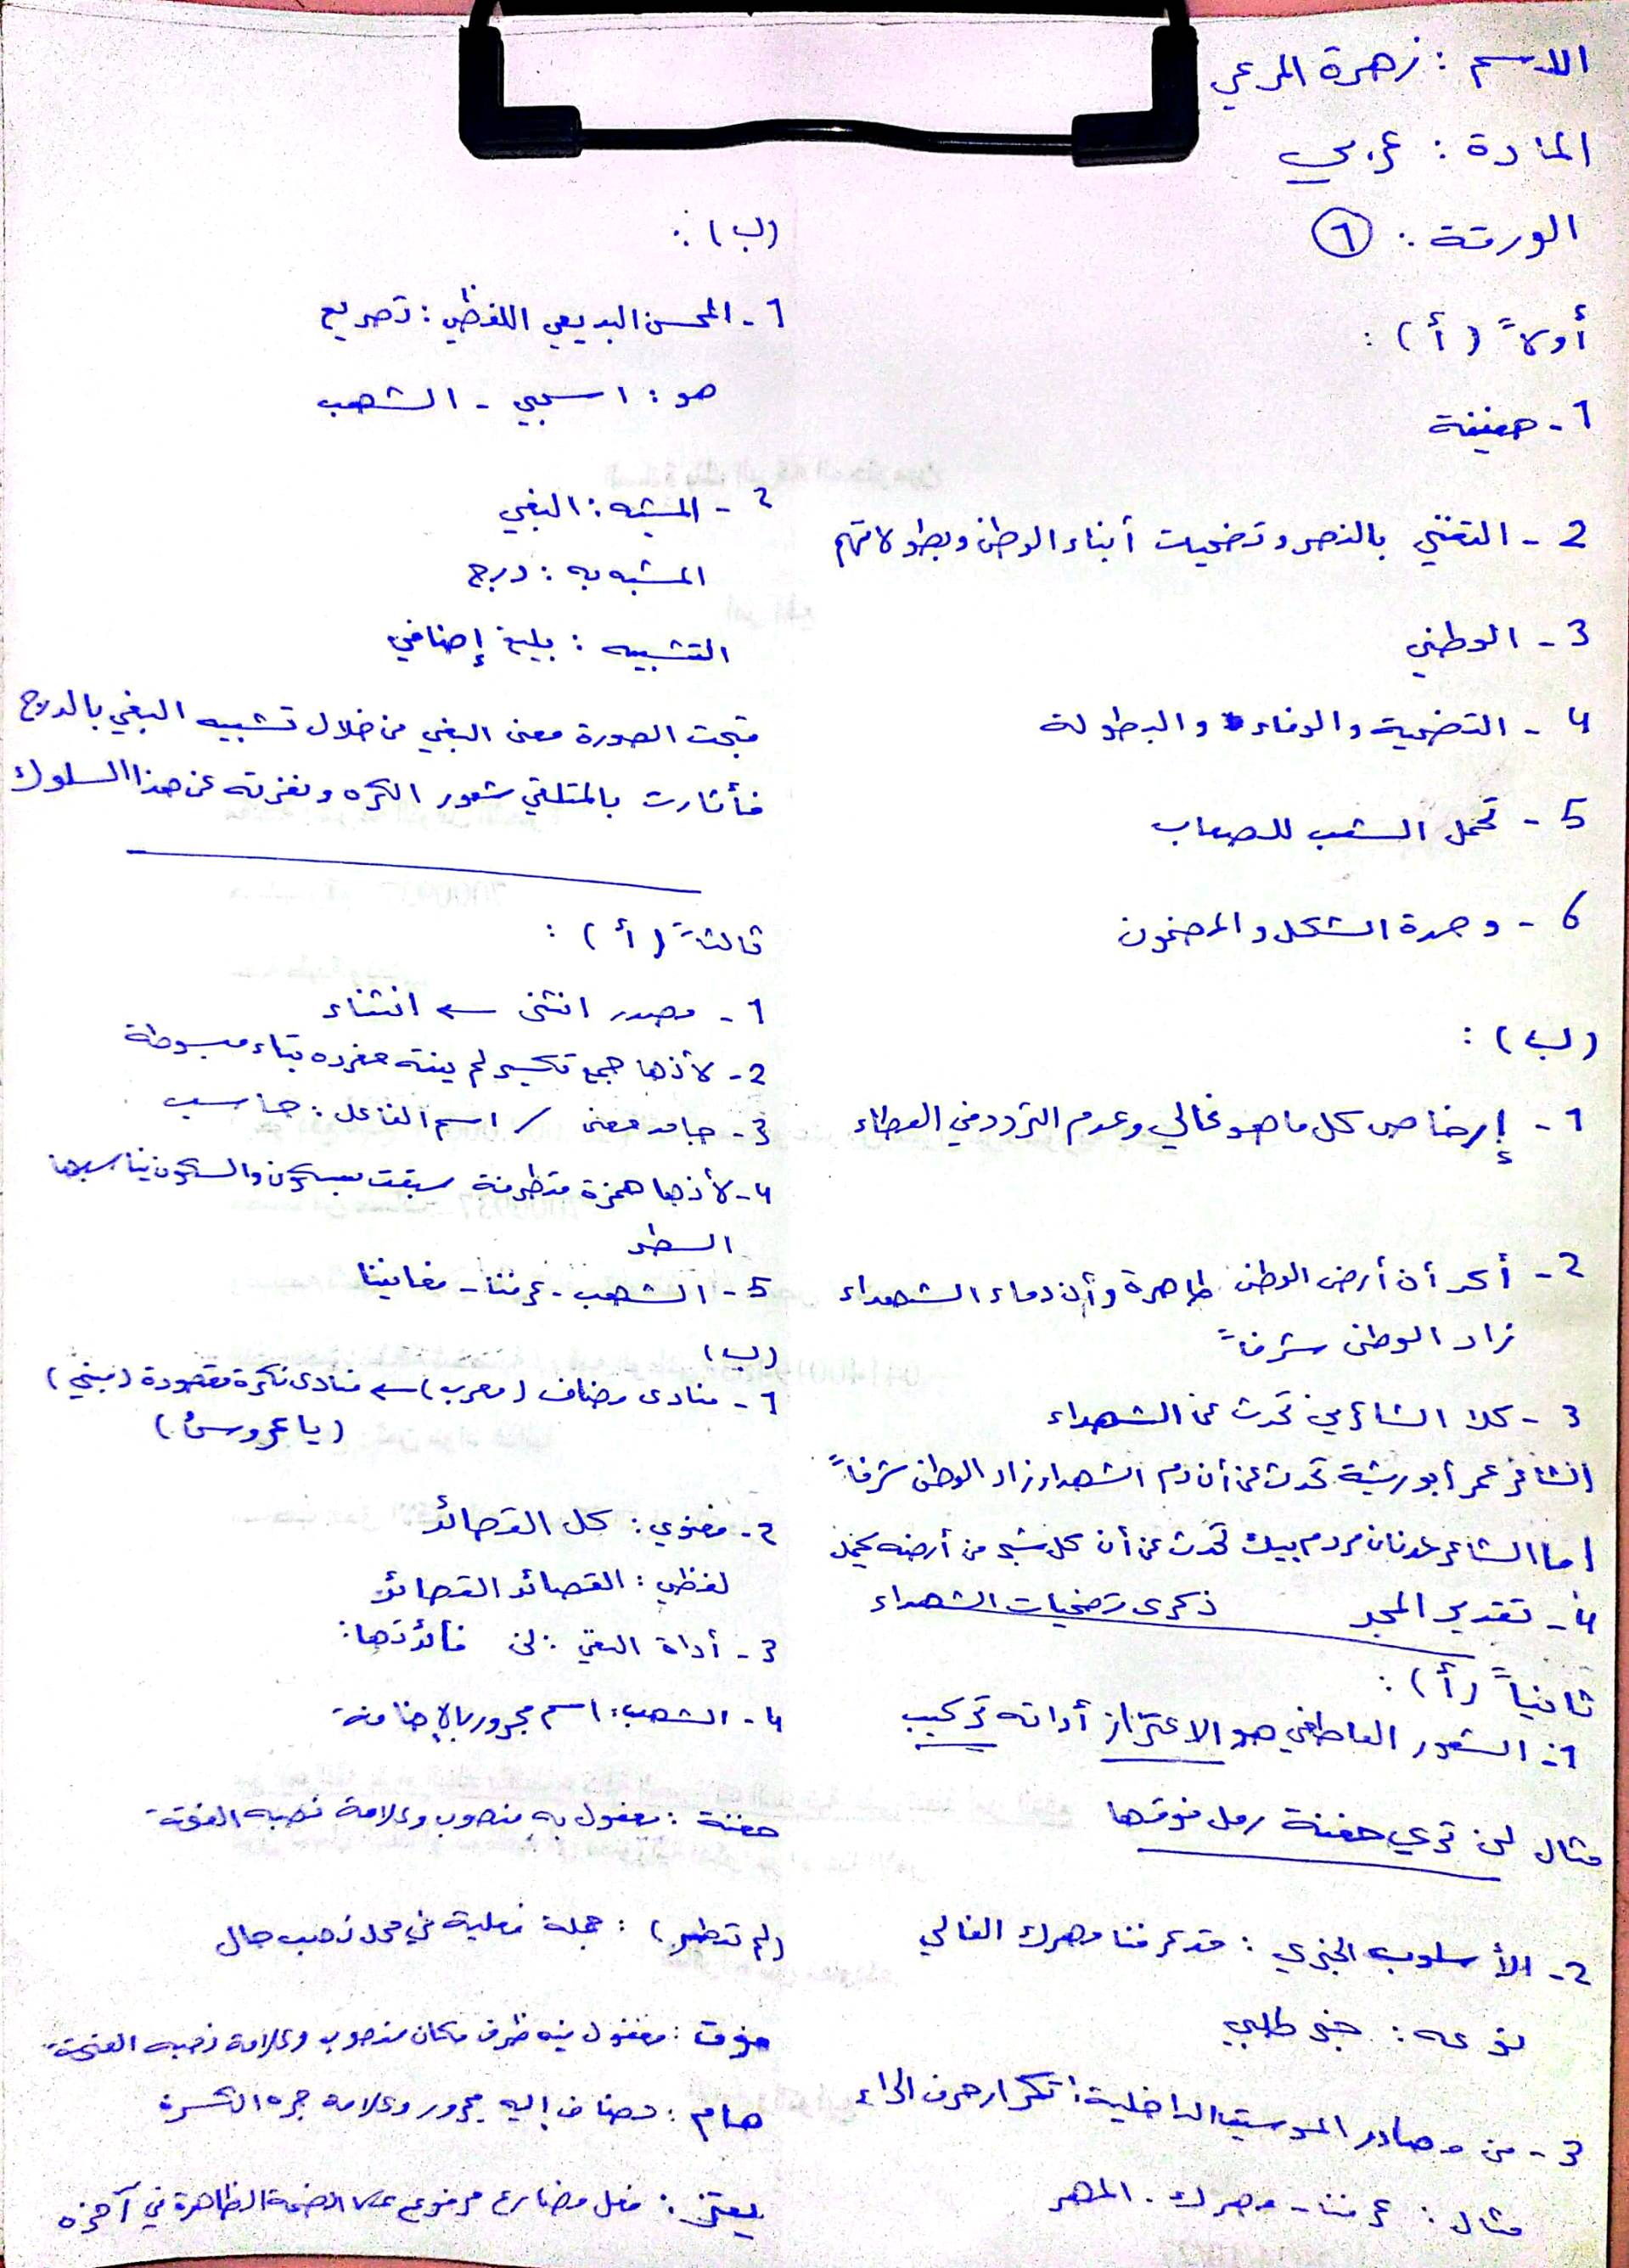 الاسم : زهرة المرعي
المادة : عربي
الورقة : ①
أولاً (أ) :
1 - حفيفة
2 - التغني بالنصر وتضحيات أبناء الوطن وبطولاتهم
3 - الوطني
4 - التضحية والوفاء والبطولة
5 - تحمل الشعب للصعاب
6 - وحدة الشكل والمضمون
(ب) :
1 - إرخاص كل ما هو غالي وعدم التردد في العطاء
2 - أكد أن أرض الوطن طاهرة وأن دماء الشهداء
زاد الوطن شرفاً
3 - كلا الشاعرين تحدث عن الشهداء
الشاعر عمر أبو ريشة تحدث عن أن دم الشهداء زاد الوطن شرفاً
أما الشاعر عدنان مردم بيك تحدث عن أن كل شبر من أرضه يحمل
ذكرى تضحيات الشهداء
4 - تقدير المجد
ثانياً (أ) :
1 - الشعور العاطفي هو الاعتزاز أداته تركيب
مثال لن تري حفنة رمل فوقها
2 - الأسلوب الخبري : قد عرفنا مهرك الغالي
نوعه : خبر طلبي
3 - من مصادر الموسيقا الداخلية : تكرار حرف الراء
مثال : عرفنا - مهرك . المهر
(ب) :
1 - المحسن البديعي اللفظي : تصريع
هو : اسحبي - الشهب
2 - المشبه : البغي
المشبه به : درج
التشبيه : بليغ إضافي
قبحت الصورة معنى البغي من خلال تشبيه البغي بالدرج
فأثارت بالمتلقي شعور الكره ونفرته عن هذا السلوك
ثالثاً (أ) :
1 - مصدر انتنى ← انثناء
2 - لأنها جمع تكسير لم ينته مفرده بتاء مبسوطة
3 - جامد معنى / اسم الفاعل : حاسب
4 - لأنها همزة متطرفة سبقت بسكون والسكون يناسبها
السطر
5 - الشهب - عرفنا - مغانينا
(ب)
1 - منادى مضاف (معرب) ← منادى نكرة مقصودة (مبني)
(يا عروسُ)
2 - معنوي : كل القصائد
لفظي : القصائد القصائد
3 - أداة النفي : لن فائدتها :
4 - الشهب : اسم مجرور بالإضافة
حفنة : مفعول به منصوب وعلامة نصبه الفتحة
(لم تطر) : جملة فعلية في محل نصب حال
فوق : مفعول فيه ظرف مكان منصوب وعلامة نصبه الفتحة
هام : مضاف إليه مجرور وعلامة جره الكسرة
يعتز : فعل مضارع مرفوع علا الضمة الظاهرة في آخره